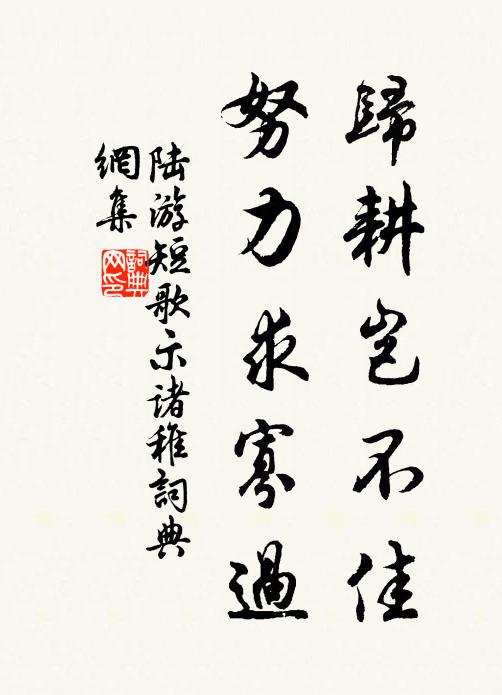 歸耕豈不佳
努力求寡過
陸游短歌示諸稚詞典
網集
詞典
网印